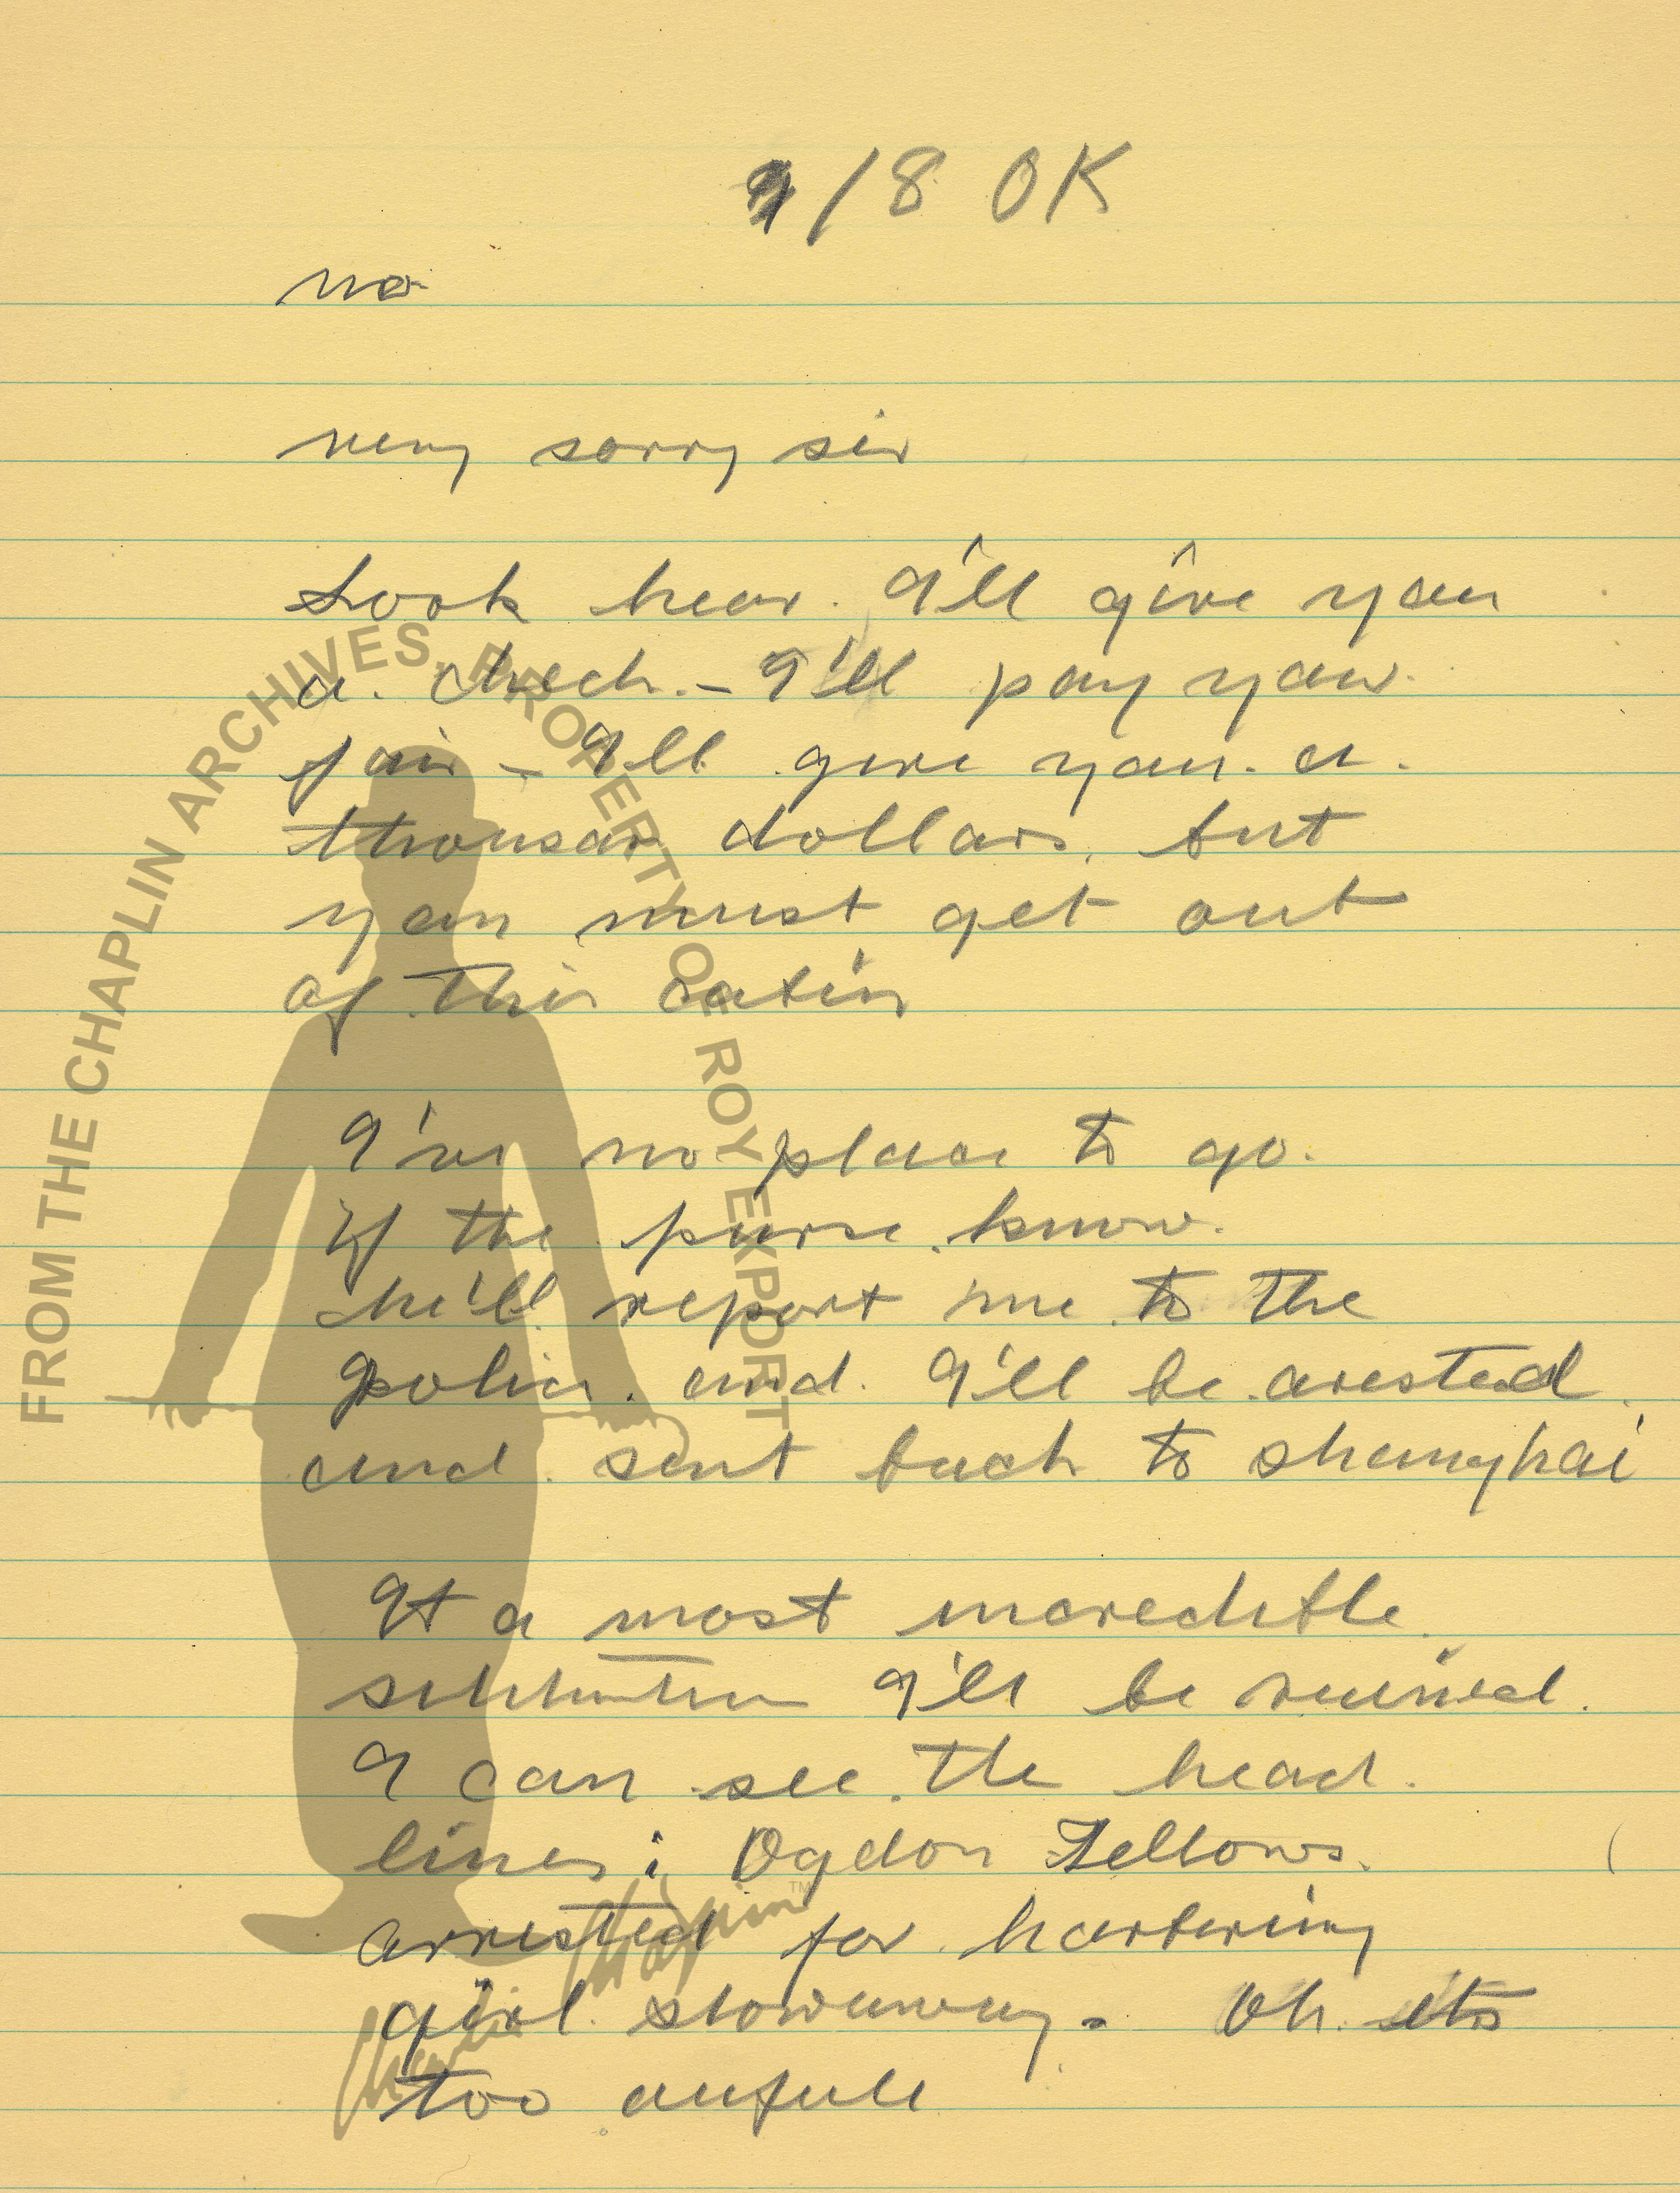 /8 OK
no
very sorry sir
Look hear. I'll give you
a. check. - I'll pay your
fair - I'll give you. a.
thousan dollars, but
you must get out
of this cabin
I've no place to go.
if the purse. know.
he'll report me to the
police. and. I'll be. arested.
and. sent back to shanghai
It a most incredible.
I'll be ruined.
I can see. the head.
lines; Ogdon Fellows.
arrested for. harboring
girl. stowaway. Oh. its
too aufull
FROM THE CHAPLIN ARCHIVES. PROPERTY OF ROY EXPORT
Charlie Chaplin ™